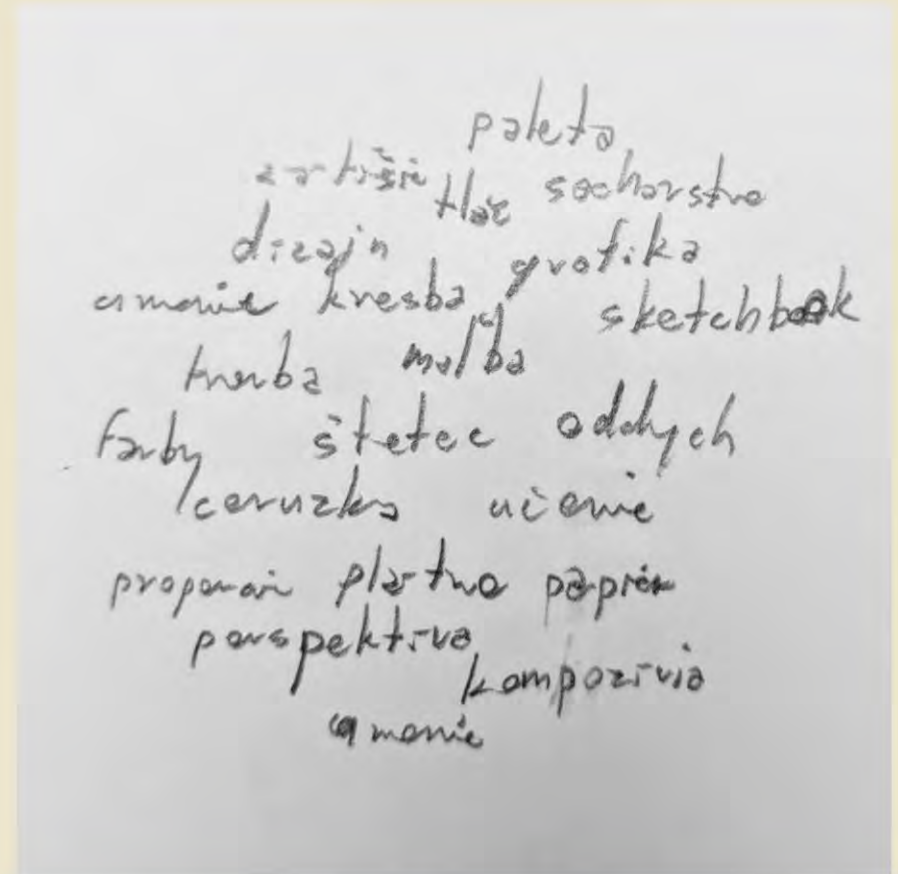 paleta
zátišie tlač sochárstvo
dizajn grafika
umenie kresba sketchbook
tvorba maľba
farby štetec oddych
ceruzka učenie
plátno papier
perspektíva
kompozícia
umenie